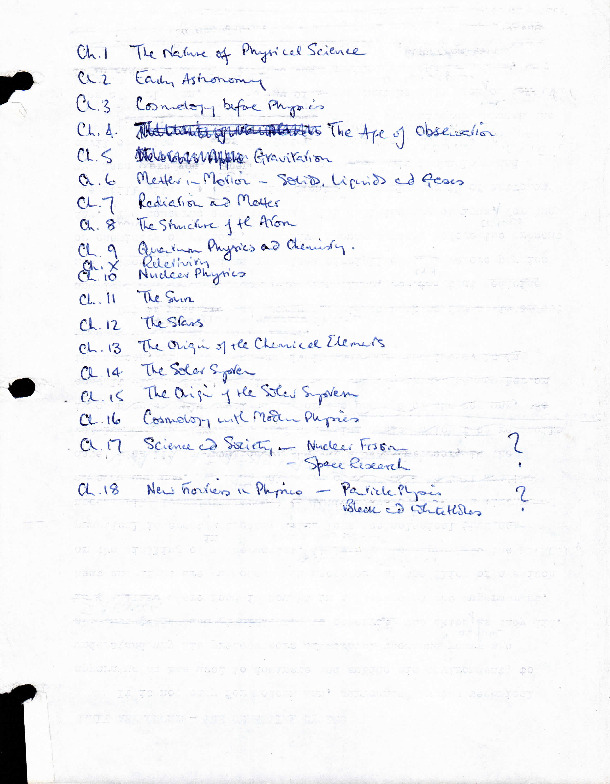 Ch.1 The Nature of Physical Science
Ch.2 Early Astronomy
Ch.3 Cosmology before Physics
Ch.4. The Age of Observation
Ch.5 Gravitation
Ch.6 Matter in Motion – Solids, Liquids and Gases
Ch.7 Radiation and Matter
Ch.8 The Structure of the Atom
Ch.9 Quantum Physics and Chemistry.
Ch.X Relativity
Ch.10 Nuclear Physics
Ch.11 The Sun
Ch.12 The Stars
Ch.13 The Origin of the Chemical Elements
Ch.14 The Solar System
Ch.15 The Origin of the Solar System
Ch.16 Cosmology with Modern Physics
Ch.17 Science and Society – Nuclear Fission ?
– Space Research
Ch.18 New Frontiers in Physics – Particle Physics ?
Black and White Holes